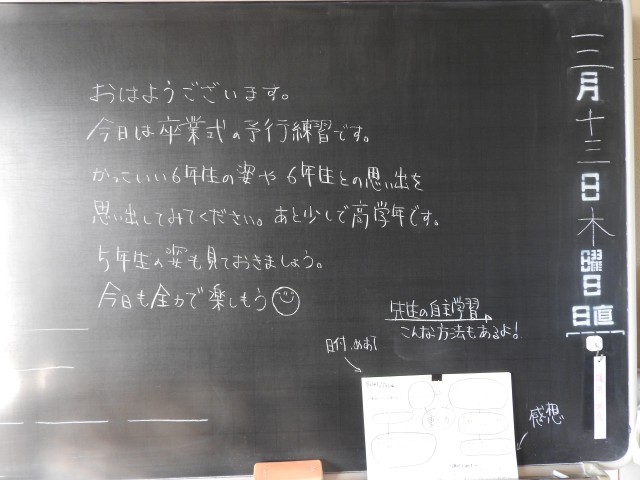 おはようございます。
今日は卒業式の予行練習です。
かっこいい6年生の姿や6年生との思い出を
思い出してみてください。あと少しで高学年です。
5年生の姿も見ておきましょう。
今日も全力で楽しもう
先生の自主学習
こんな方法もあるよ!
日付、めあて
感想
三月十三日木曜日
日直